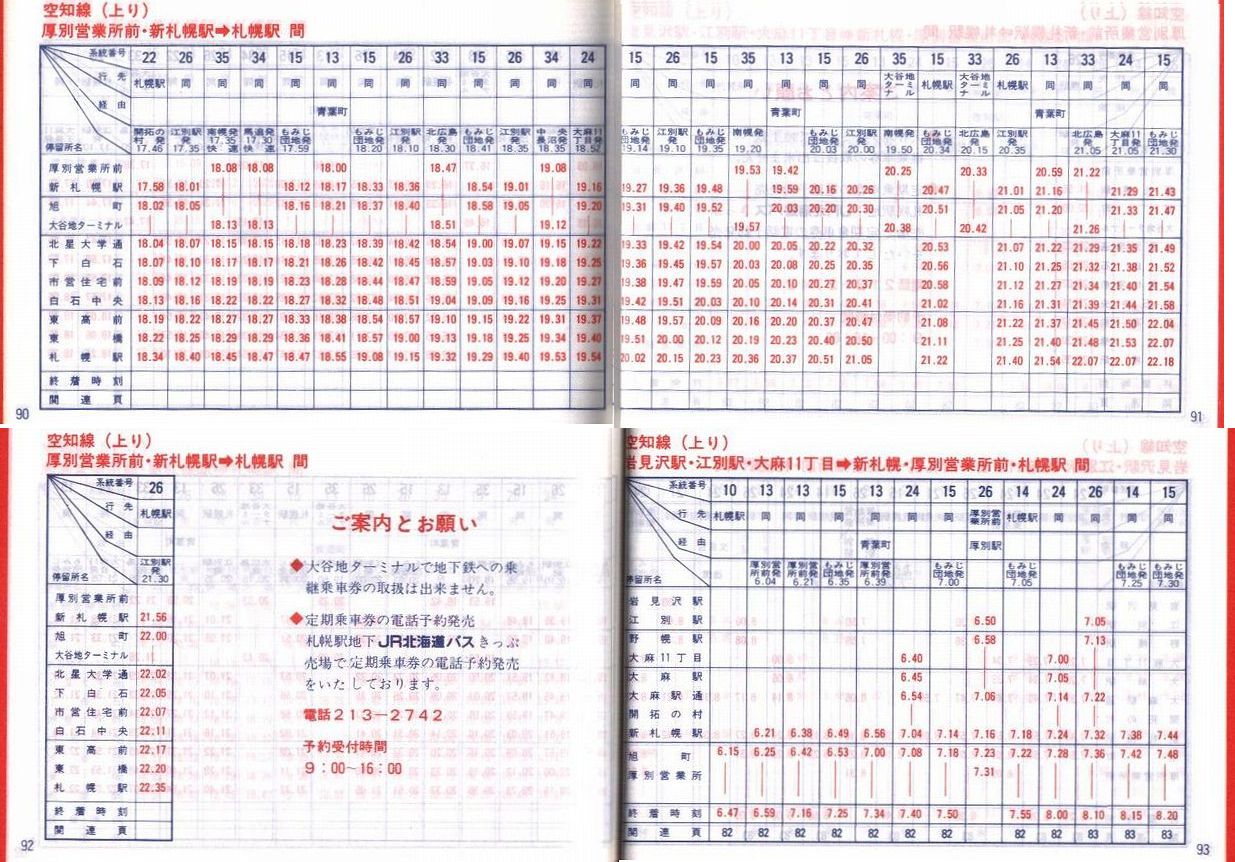 空知線（上り）
厚別営業所前・新札幌駅➡札幌駅 間
系統番号 22 26 35 34 15 13 15 26 33 15 26 34 24
行先 札幌駅 同 同 同 同 同 同 同 同 同 同 同 同
経由 青葉町
停留所名 開拓の村発17.46 江別駅発17.35 南幌発17.35快速 馬追発17.30快速 もみじ団地発17.59 もみじ団地発18.20 江別駅発18.10 北広島発18.30 もみじ団地発18.41 江別駅発18.35 中央長沼発18.35 大麻11丁目発18.52
厚別営業所前 18.08 18.08 18.00 18.47 19.08
新札幌駅 17.58 18.01 18.12 18.17 18.33 18.36 18.54 19.01 19.16
旭町 18.02 18.05 18.16 18.21 18.37 18.40 18.58 19.05 19.20
大谷地ターミナル 18.13 18.13 18.51 19.12
北星大学通 18.04 18.07 18.15 18.15 18.18 18.23 18.39 18.42 18.54 19.00 19.07 19.15 19.22
下白石 18.07 18.10 18.17 18.17 18.21 18.26 18.42 18.45 18.57 19.03 19.10 19.18 19.25
市営住宅前 18.09 18.12 18.19 18.19 18.23 18.28 18.44 18.47 18.59 19.05 19.12 19.20 19.27
白石中央 18.13 18.16 18.22 18.22 18.27 18.32 18.48 18.51 19.04 19.09 19.16 19.25 19.31
東高前 18.19 18.22 18.27 18.27 18.33 18.38 18.54 18.57 19.10 19.15 19.22 19.31 19.37
東橋 18.22 18.25 18.29 18.29 18.36 18.41 18.57 19.00 19.13 19.18 19.25 19.34 19.40
札幌駅 18.34 18.40 18.45 18.47 18.47 18.55 19.08 19.15 19.32 19.29 19.40 19.53 19.54
終着時刻
関連頁
90
15 26 15 35 13 15 26 35 15 33 26 13 33 24 15
同 同 同 同 同 同 同 大谷地ターミナル 札幌駅 大谷地ターミナル 札幌駅 同 同 同 同
青葉町 青葉町
もみじ団地発19.14 江別駅発19.10 もみじ団地発19.35 南幌発19.20 もみじ団地発20.03 江別駅発20.00 南幌発19.50 もみじ団地発20.34 北広島発20.15 江別駅発20.35 北広島発21.05 大麻11丁目発21.05 もみじ団地発21.30
19.53 19.42 20.25 20.33 20.59 21.22
19.27 19.36 19.48 19.59 20.16 20.26 20.47 21.01 21.16 21.29 21.43
19.31 19.40 19.52 20.03 20.20 20.30 20.51 21.05 21.20 21.33 21.47
19.57 20.38 20.42 21.26
19.33 19.42 19.54 20.00 20.05 20.22 20.32 20.53 21.07 21.22 21.29 21.35 21.49
19.36 19.45 19.57 20.03 20.08 20.25 20.35 20.56 21.10 21.25 21.32 21.38 21.52
19.38 19.47 19.59 20.05 20.10 20.27 20.37 20.58 21.12 21.27 21.34 21.40 21.54
19.42 19.51 20.03 20.10 20.14 20.31 20.41 21.02 21.16 21.31 21.39 21.44 21.58
19.48 19.57 20.09 20.16 20.20 20.37 20.47 21.08 21.22 21.37 21.45 21.50 22.04
19.51 20.00 20.12 20.19 20.23 20.40 20.50 21.11 21.25 21.40 21.48 21.53 22.07
20.02 20.15 20.23 20.36 20.37 20.51 21.05 21.22 21.40 21.54 22.07 22.07 22.18
91
空知線（上り）
厚別営業所前・新札幌駅➡札幌駅 間
系統番号 26
行先 札幌駅
経由
停留所名 江別駅発21.30
厚別営業所前
新札幌駅 21.56
旭町 22.00
大谷地ターミナル
北星大学通 22.02
下白石 22.05
市営住宅前 22.07
白石中央 22.11
東高前 22.17
東橋 22.20
札幌駅 22.35
終着時刻
関連頁
92
ご案内とお願い
◆大谷地ターミナルで地下鉄への乗
継乗車券の取扱は出来ません。
◆定期乗車券の電話予約発売
札幌駅地下JR北海道バスきっぷ
売場で定期乗車券の電話予約発売
をいたしております。
電話213−2742
予約受付時間
9：00〜16：00
空知線（上り）
岩見沢駅・江別駅・大麻11丁目➡新札幌・厚別営業所前・札幌駅 間
系統番号 10 13 13 15 13 24 15 26 14 24 26 14 15
行先 札幌駅 同 同 同 同 同 同 厚別営業所前 札幌駅 同 同 同 同
経由 青葉町 厚別駅
停留所名 厚別営業所前発6.04 厚別営業所前発6.21 もみじ団地発6.35 厚別営業所前発6.39 もみじ団地発7.00 もみじ団地発7.05 もみじ団地発7.25 もみじ団地発7.30
岩見沢駅
江別駅 6.50 7.05
野幌駅 6.58 7.13
大麻11丁目 6.40 7.00
大麻駅 6.45 7.05
大麻駅通 6.54 7.06 7.14 7.22
開拓の村
新札幌駅 6.21 6.38 6.49 6.56 7.04 7.14 7.16 7.18 7.24 7.32 7.38 7.44
旭町 6.15 6.25 6.42 6.53 7.00 7.08 7.18 7.23 7.22 7.28 7.36 7.42 7.48
厚別営業所 7.31
終着時刻 6.47 6.59 7.16 7.25 7.34 7.40 7.50 7.55 8.00 8.10 8.15 8.20
関連頁 82 82 82 82 82 82 82 82 82 83 83 83
93